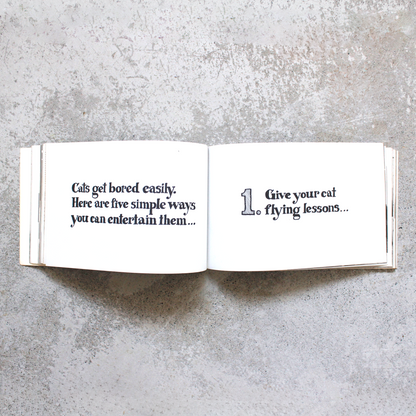 Cats get bored easily.
Here are five simple ways
you can entertain them...
1. Give your cat
flying lessons...